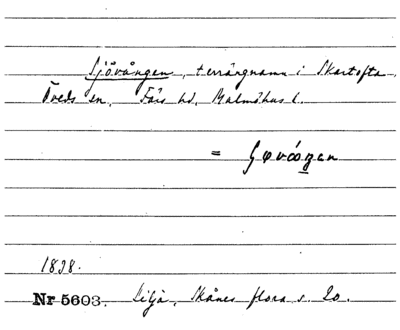 Sjövången, terrängnamn i Skartofta,
Öveds sn. Färs hd. Malmöhus l.
=
1838.
Nr 5603. Lilja, Skånes flora s. 20.